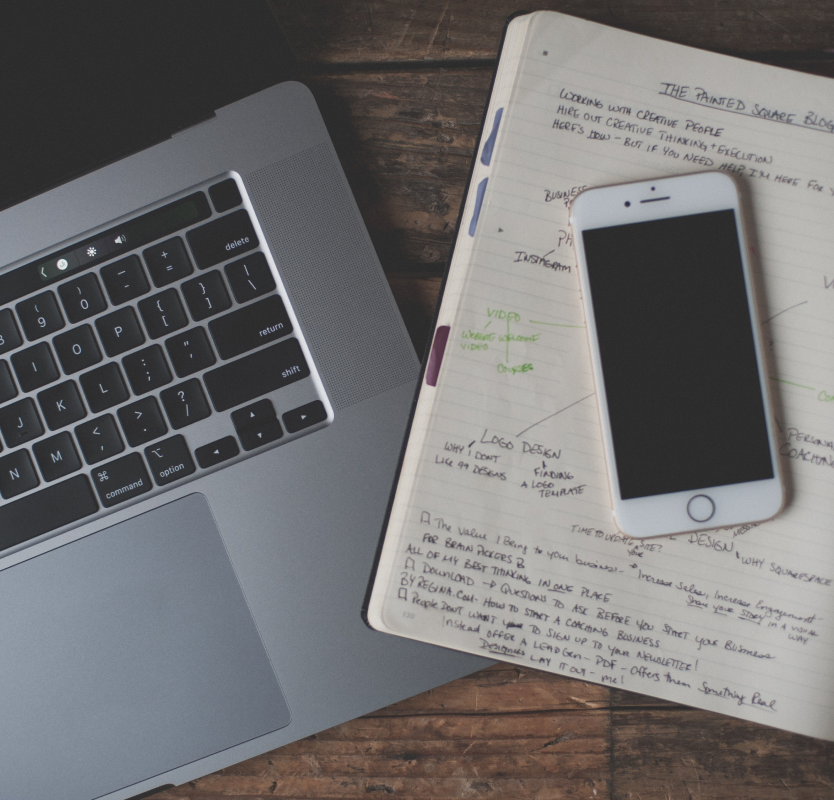 delete
return
shift
command
option
8
9
(
0
)
-
+
=
{
[
}
]
|
\
I
O
P
J
K
L
:
;
"
'
N
M
<
,
>
.
?
/
THE PAINTED SQUARE BLOG
WORKING WITH CREATIVE PEOPLE
HIRE OUT CREATIVE THINKING + EXECUTION
HERE'S HOW - BUT IF YOU NEED HELP I'M HERE FOR
BUSINESS
INSTAGRAM
VIDEO
WELCOME
VIDEO
COURSES
LOGO DESIGN
WHY I DON'T
LIKE 99 DESIGNS
FINDING
A LOGO
TEMPLATE
PERSONAL
COACHING
DESIGN
WHY SQUARESPACE
The value I bring to your business - Increase Sales, Increase Engagement
Show your STORY in a visual
WAY
FOR BRAIN PICKERS
ALL OF MY BEST THINKING IN ONE PLACE
DOWNLOAD -> QUESTIONS TO ASK BEFORE YOU START YOUR BUSINESS
BYREGINA.COM - HOW TO START A COACHING BUSINESS
People DON'T WANT TO SIGN UP TO YOUR NEWSLETTER!
Instead OFFER A LEAD GEN - PDF - Offers them Something Real
Designer LAY IT OUT - me!